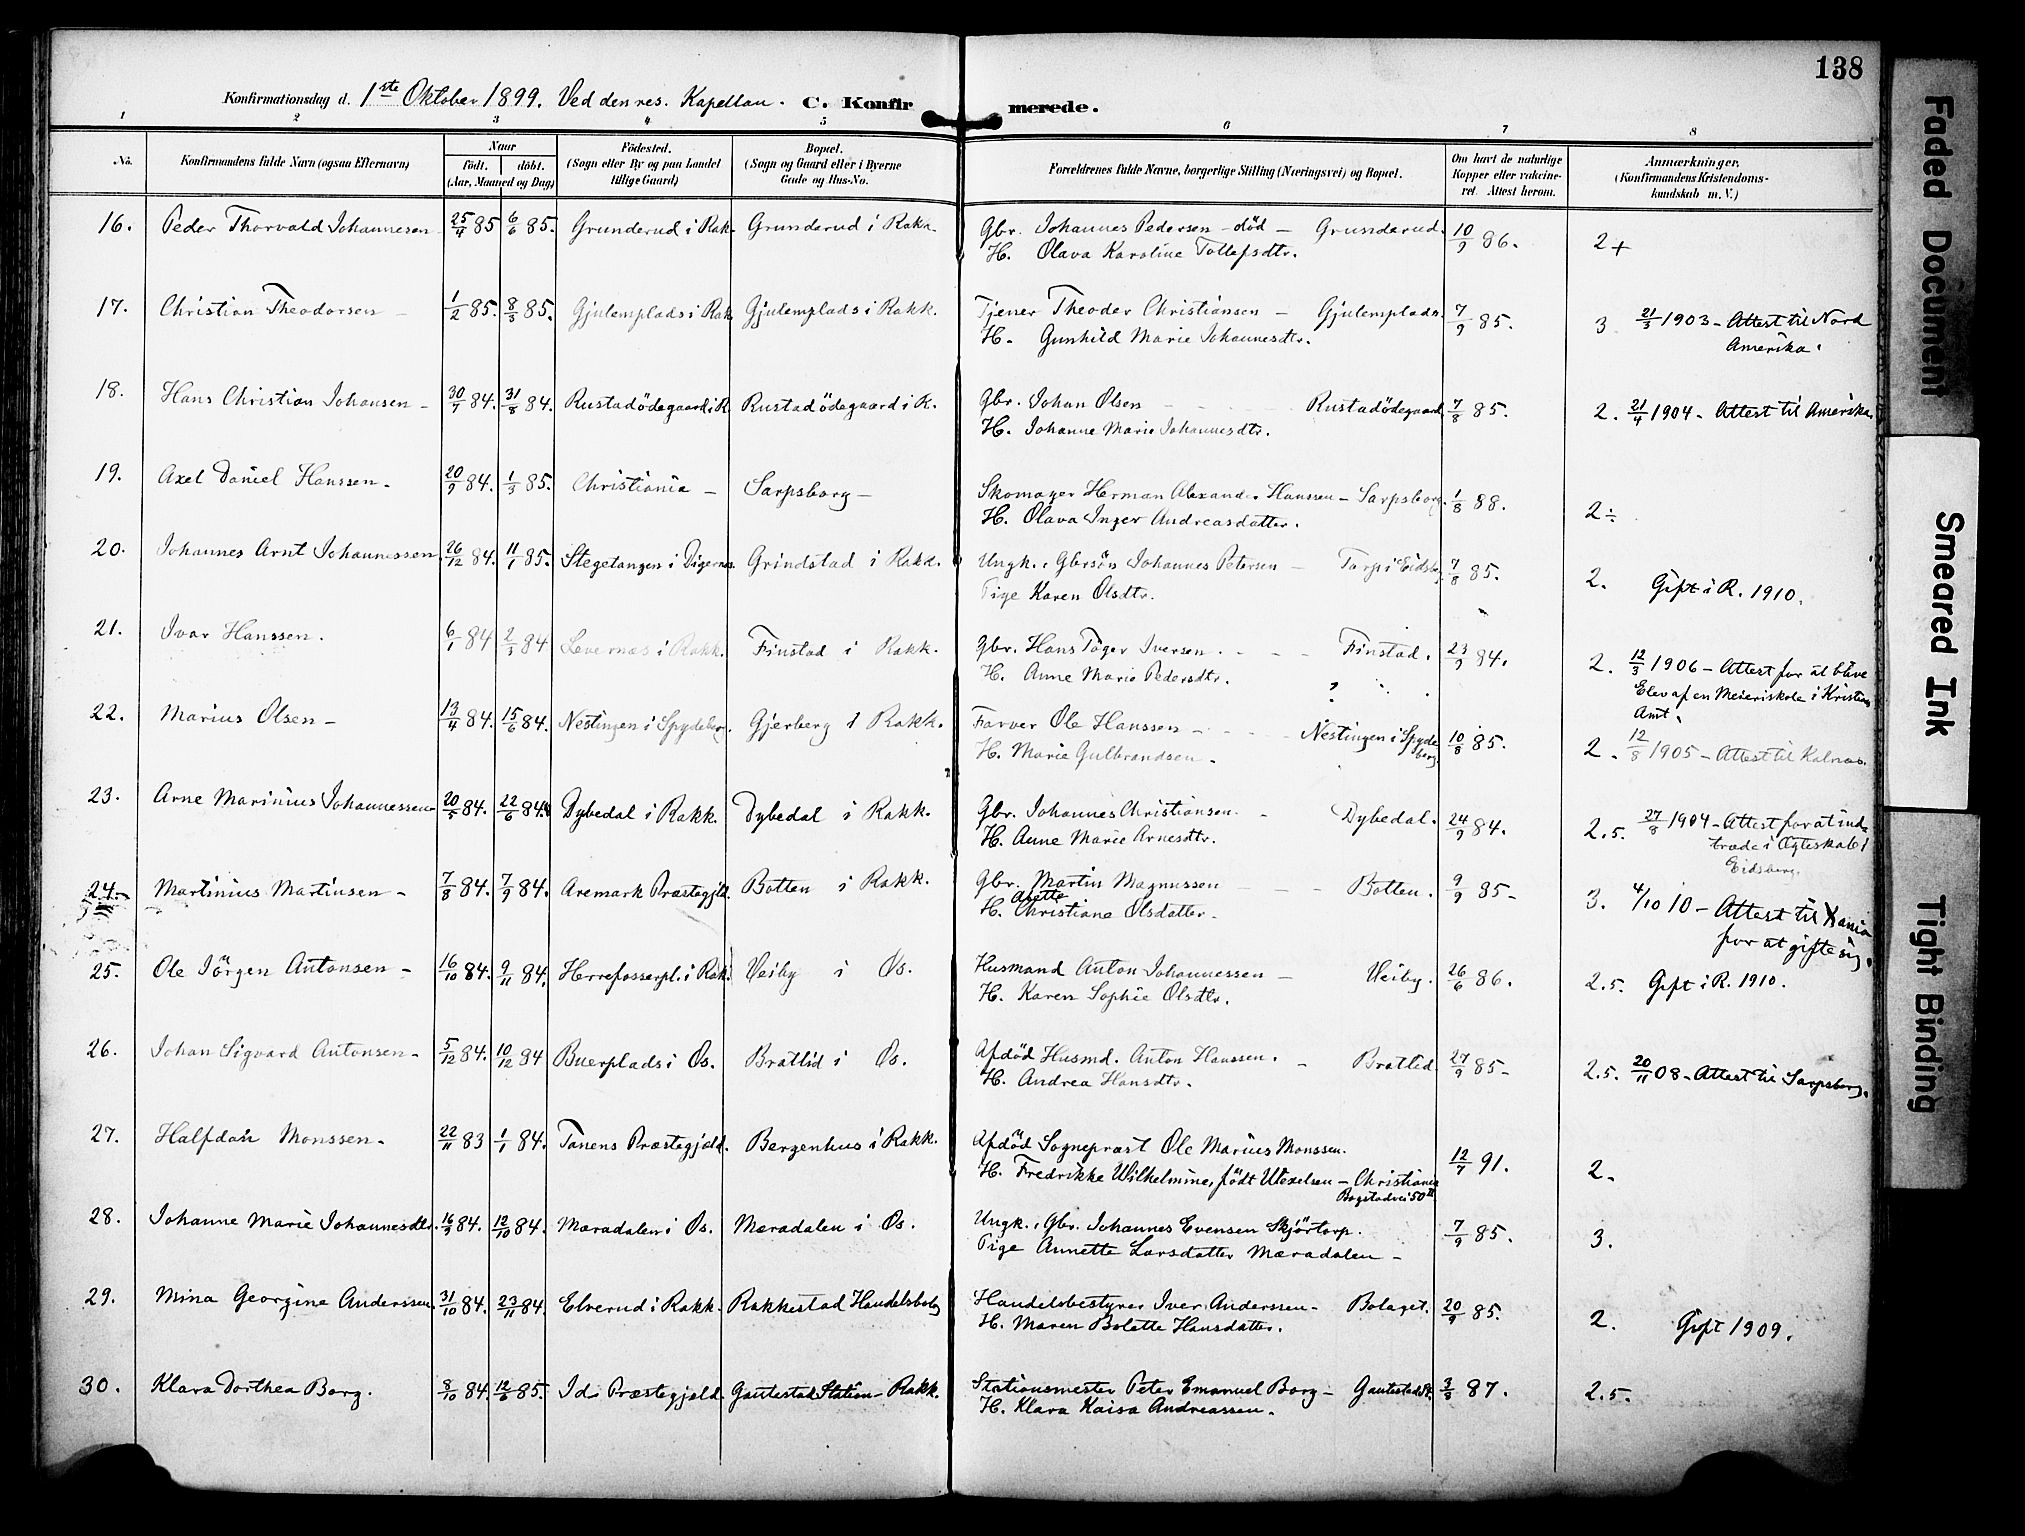 138
Konfirmationsdag d. 1ste Oktober 1899. Ved den res. Kapellan. C. Konfir merede.
1 2 3 4 5 6 7 8
No. Konfirmandens fulde Navn (ogsaa Efternavn) Naar født. døbt. (Aar, Maaned og Dag) Fødested. (Sogn eller By og paa Landet tillige Gaard) Bopæl. (Sogn og Gaard eller i Byerne Gade og Hus-No. Forældrenes fulde Navne, borgerlige Stilling (Næringsvei) og Bopæl. Om havt de naturlige Kopper eller vakcineret. Attest herom. Anmærkninger. (Konfirmandens Kristendomskundskab m. V.)
16. Peder Thorvald Johannesen 25/4 85 6/6 85. Grunderud i Rak. Grunderud i Rakk. Gbr. Johannes Pedersen - død - Grunderud. 10/9 86. 2+
H. Olava Karoline Tollefsdtr.
17. Christian Theodorsen - 1/2 85. 8/3 85. Gjulemplads i Rak. Gjulemplads i Rakk. Tjener Theodor Christiansen - Gjulemplads. 7/9 85. 3 21/3 1903 - Attest til Nord
H. Gunhild Marie Johannesdtr. Amerika.
18. Hans Christian Johansen - 30/7 84. 31/8 84. Rustadödegaard i R. Rustadödegaard i R. Gbr. Johan Olsen - Rustadödegaard 7/8 85. 2. 21/4 1904 - Attest til Amerika.
H. Johanne Marie Johannesdtr.
19. Axel Daniel Hanssen. 20/9 84. 1/3 85. Christiania - Sarpsborg - Skomager Herman Alexander Hanssen - Sarpsborg. 1/8 88. 2÷
H. Olava Inger Andreasdatter.
20. Johannes Arnt Johannessen. 26/12 84. 11/1 85. Stegetangen i Digernes. Grindstad i Rakk. Ungk., Gbrsön Johannes Petersen - Torp i Eidsb. 7/8 85. 2. Gift i R. 1910.
Pige Karen Olsdtr.
21. Ivar Hanssen. 6/1 84 2/3 84 Levernæs i Rakk. Finstad i Rakk. Gbr. Hans Töger Iversen. - - - Finstad. 23/9 84. 2. 12/3 1906 - Attest for at blive
H. Anne Marie Pedersdtr. Elev af en Meieriskole i Kristians
Amt.
22. Marius Olsen - 13/4 84. 15/6 84. Nestingen i Spydeberg. Gjerberg i Rakk. Farver Ole Hanssen - - - - Nestingen i Spydeberg 10/8 85. 2. 12/8 1905 - Attest til Kalnæs.
H. Marie Gulbrandsen.
23. Arne Marinius Johannessen 20/5 84. 22/6 84. Dybedal i Rakk. Dybedal i Rakk. Gbr. Johannes Christiansen. - Dybedal. 24/9 84. 2.5. 27/8 1904 - Attest for at ind-
H. Anne Marie Arnesdtr. træde i Ægteskab i
Eidsberg.
24. Martinius Martinsen - 7/8 84. 7/9 84. Aremark Præstegjld. Botten i Rakk. Gbr. Martin Magnussen - - Botten. 9/9 85 - 3. 4/10 10 - Attest til Xania
H. Christiane Olsdatter - for at gifte sig.
25. Ole Jörgen Antonsen - 16/10 84. 9/11 84. Herrefosserpl. i Rak. Veiby i Øs. Husmand Anton Johannessen - Veiby. 26/6 86. 2.5. Gift i R. 1910.
H. Karen Sophie Olsdtr.
26. Johan Sigvard Antonsen - 5/12 84. 10/12 84 Buerplads i Øs. Bratlid i Øs. Afdöd Husmd. Anton Hanssen. - Bratlid 27/9 85 - 2.5. 20/11 08 - Attest til Sarpsborg.
H. Andrea Hansdtr.
27. Halfdan Monssen - 22/11 83 1/1 84. Tanens Præstegjeld. Bergenhus i Rakk. Afdöd Sogneprast Ole Marius Monssen. 12/7 91. 2.
H. Fredrikke Wilhelmine, født Utexelsen - Christiania
Bogstadvei 50 II
28. Johanne Marie Johannesdtr. 16/9 84. 12/10 84. Mæradalen i Øs. Mæradalen i Øs. Ungk., Gbr. Johannes Evensen Skjörtorp. 7/9 85. 3.
Pige Annette Larsdatter Mæradalen -
29. Mina Georgine Anderssen. 31/10 84. 23/11 84. Elverud i Rakk. Rakkestad Handelsbolag Handelsbestyrer Iver Anderssen - Bolaget. 20/9 85. 2. Gift 1909.
H. Maren Bolette Hansdatter.
30. Klara Dorthea Borg. 8/10 84. 12/6 85. Id Præstegjeld. Gautestad Station - Rakk. Stationsmester Peter Emanuel Borg - Gautestad St. 3/8 87. 2.5.
H. Klara Kaisa Andreassen.
Faded Document
Smeared Ink
Tight Binding